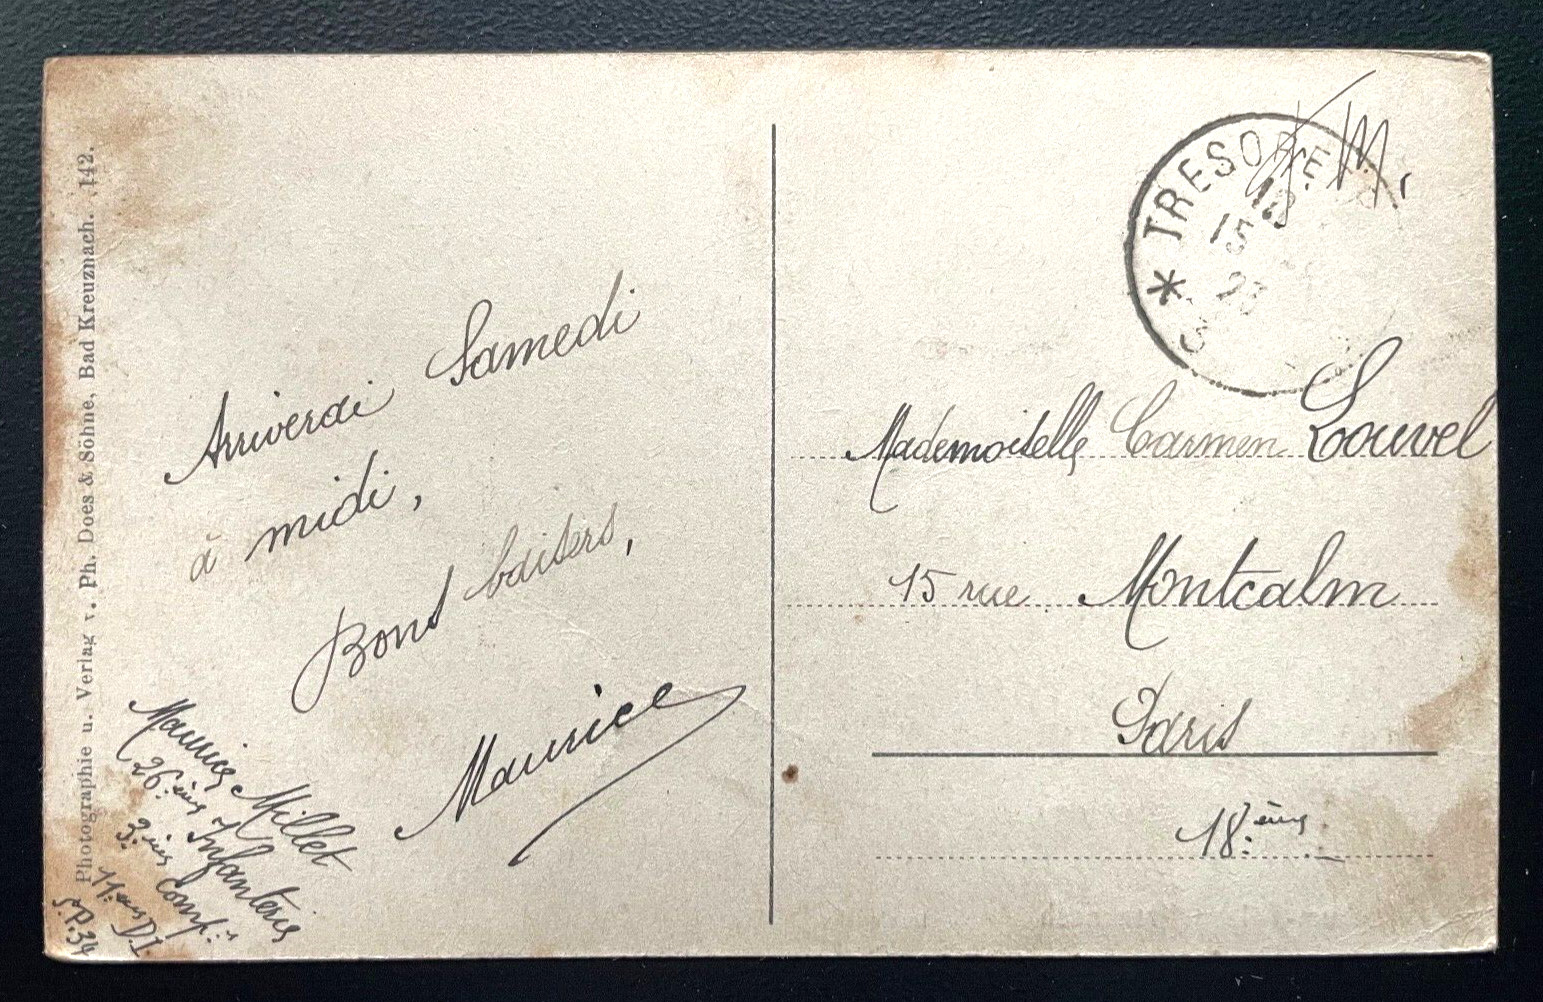 Photographie u. Verlag v. Ph. Does & Söhne, Bad Kreuznach. 142.
Arriverai Samedi
à midi,
Bons baisers,
Maurice
Maurice Millet
26.ème Infanterie
3.ème Comp.ie
11.ème D.I.
S.P. 34
F.M.
* TRESOR ET
15
23
Mademoiselle Carmen Louvel
15 rue Montcalm
Paris
18.ème